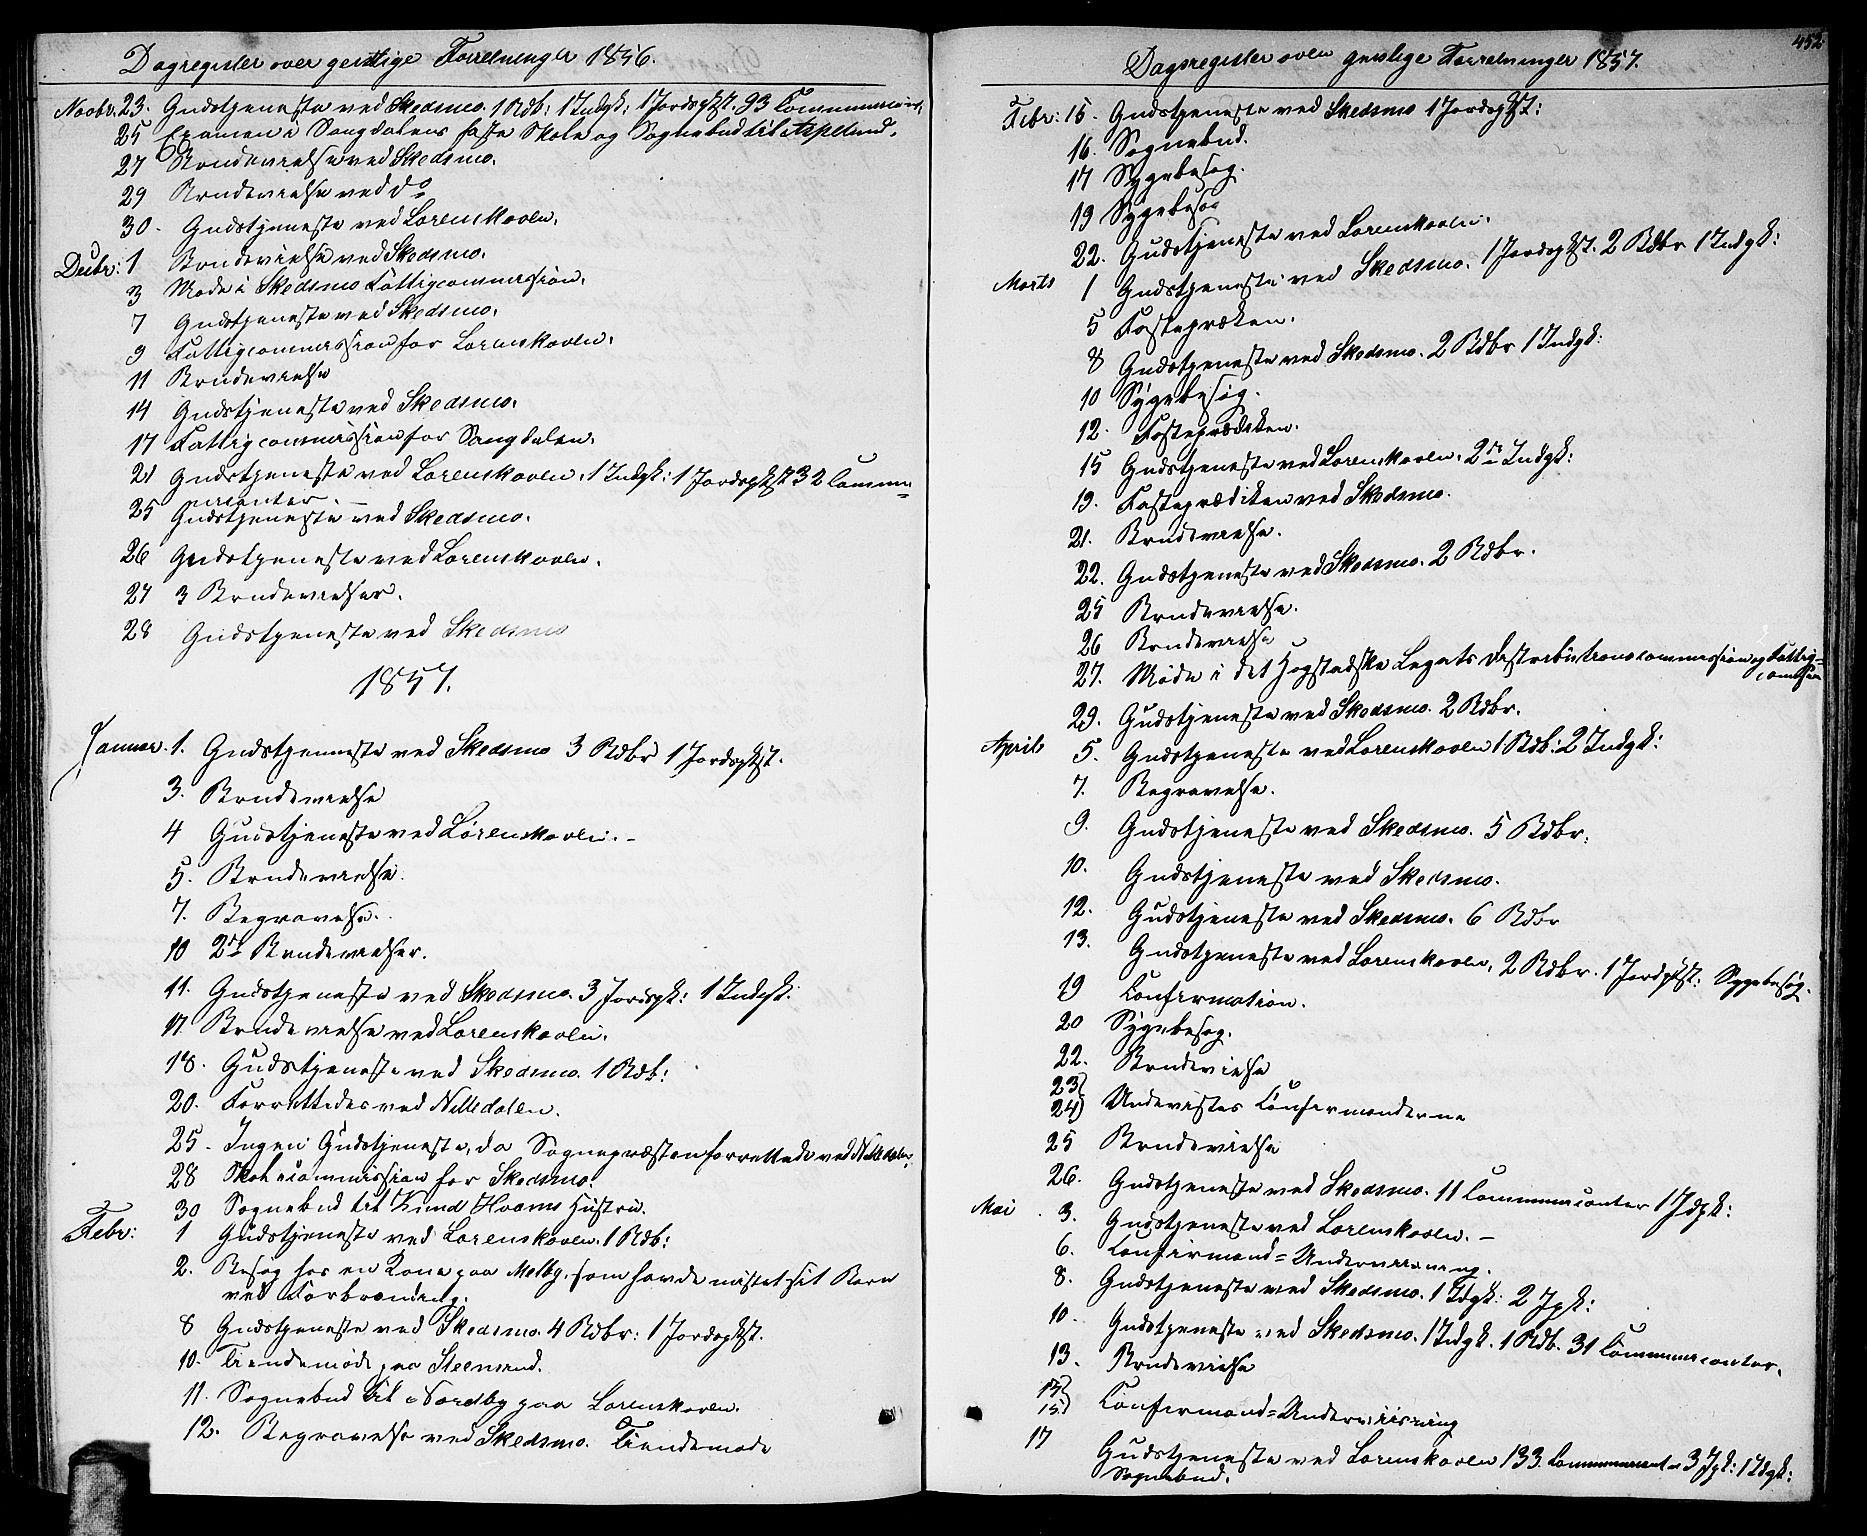 Dagregister over geistlige Forretninger 1856.
Novbr: 23. Gudstjeneste ved Skedsmo. 1 Rdb: 1 Indgk: 1 Jordsptst. 93 Communicant.
25 Examen i Sangdalens faste Skole og Sognebud til Aspelund.
27 Brudevielse ved Skedsmo.
29 Brudevielse ved do
30. Gudstjeneste ved Lørenskoven.
Decbr: 1 Brudevielse ved Skedsmo.
3 Møde i Skedsmo Fattigcommission.
7 Gudstjeneste ved Skedsmo.
9 Fattigcommission for Lørenskoven.
11 Brudevielse
14 Gudstjeneste ved Skedsmo.
17 Fattigcommission for Sangdalen.
21 Gudstjeneste ved Lørenskoven. 1 Indgk: 1 Jordsptst 32 Commu=
nicanter. —
25 Gudstjeneste ved Skedsmo.
26 Gudstjeneste ved Lørenskoven.
27 3 Brudevielser.
28 Gudstjeneste ved Skedsmo
1857.
Januar. 1. Gudstjeneste ved Skedsmo 3 Rdbr 1 Jordsptst.
3. Brudevielse
4 Gudstjeneste ved Lørenskoven. –
5. Brudevielse.
7. Begravelse.
10 2de Brudevielser.
11. Gudstjeneste ved Skedsmo. 3 Jordspk: 1 Indgk:
17 Brudevielse ved Lørenskoven.
18. Gudstjeneste ved Skedsmo. 1 Rdb:
20. Forrettedes ved Nittedalen.
25. Ingen Gudstjeneste, da Sognepræsten forrettede ved Nittedalen.
28 Skolecommission for Skedsmo.
30 Sognebud til Knud Hvams Hustru.
Febr: 1 Gudstjeneste ved Lørenskoven. 1 Rdb:
2. Besøg hos en Kone paa Melby, som havde mistet sit Barn
ved Forbrænding.
8 Gudstjeneste ved Skedsmo. 4 Rdbr: 1 Jordsptst.
10. Tiendemøde paa Steensrud.
11. Sognebud til Nordby paa Lørenskoven.
12. Begravelse ved Skedsmo. Tiendemøde
452
Dagsregister over geistlige Forretninger 1857.
Febr: 15. Gudstjeneste ved Skedsmo 1 Jordsptst:
16. Sognebud.
17 Sygebesøg.
19 Sygebesøg
22. Gudstjeneste ved Lørenskoven.
Marts 1 Gudstjeneste ved Skedsmo. 1 Jordsptst. 2 Rdbr 1 Indgk:
5 Fastepræken.
8 Gudstjeneste ved Skedsmo. 2 Rdbr 1 Indgk:
10 Sygebesøg.
12. Fasteprædiken.
15 Gudstjeneste ved Lørenskoven. 2de Indgk:
19. Fasteprædiken ved Skedsmo.
21. Brudevielse.
22. Gudstjeneste ved Skedsmo. 2 Rdbr.
25 Brudevielse.
26 Brudevielse
27. Møde i det Hogstadske Legats Distributionscommission og Fattig=
comision
29. Gudstjeneste ved Skedsmo. 2 Rdbr.
April 5. Gudstjeneste ved Lørenskoven 1 Rdb: 2 Indgk:
7. Begravelse.
9. Gudstjeneste ved Skedsmo. 5 Rdbr.
10. Gudstjeneste ved Skedsmo.
12. Gudstjeneste ved Skedsmo. 6 Rdbr
13. Gudstjeneste ved Lørenskoven. 2 Rdbr. 1 Jordptst: Sygebesøg.
19 Confirmation.
20 Sygebesøg.
22. Brudevielse
23)
24) Undervistes Confirmanderne
25 Brudevielse
26. Gudstjeneste ved Skedsmo. 11 Communicanter 1 Idgk:
Mai 3. Gudstjeneste ved Lørenskoven. –
6. Confirmand=Underviisning.
8. Gudstjeneste ved Skedsmo. 1 Idgk: 2 Jpk:
10. Gudstjeneste ved Skedsmo. 1 Indgk. 1 Rdb. 31 Communicanter.
13. Brudevielse
14)
15) Confirmand=Underviisning
17 Gudstjeneste ved Lørenskoven 133 Communicant 3 Jpk: 1 Idgk:
Sognebud.